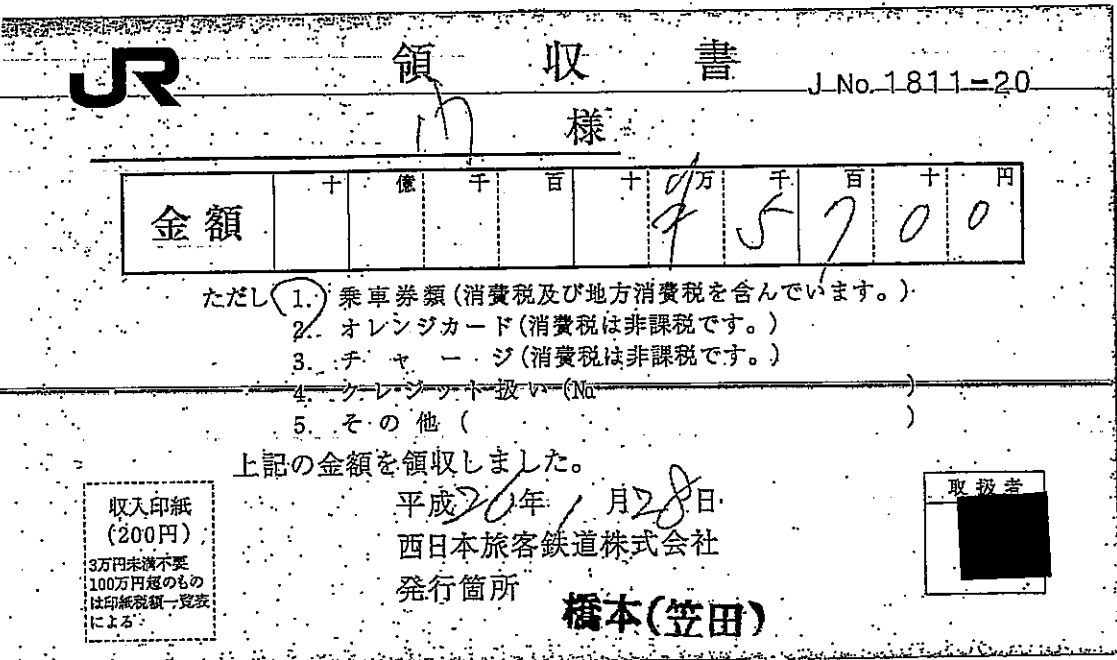 JR
領収書
J No. 1811-20
様
金額
十 億 千 百 十 万 千 百 十 円
¥ 5 7 0 0
ただし 1. 乗車券類(消費税及び地方消費税を含んでいます。)
2. オレンジカード(消費税は非課税です。)
3. チャージ(消費税は非課税です。)
4. クレジット扱い(No )
5. その他( )
上記の金額を領収しました。
平成26年1月28日
西日本旅客鉄道株式会社
発行箇所
橋本(笠田)
収入印紙
(200円)
3万円未満不要
100万円超のもの
は印紙税額一覧表
による
取扱者